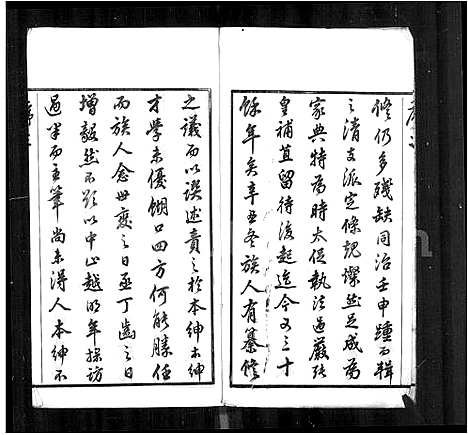 修仍多殘缺同治壬申踵而輯
之清支派定條規燦然足成為
家典特為時太促執法過嚴張
皇補苴留待後起迄今又三十
餘年矣辛丑冬族人有纂修
之議而以謨述責之於本紳本紳
才學未優餬口四方何能勝任
而族人念世變之日亟丁齒之日
增毅然不欲以中止越明年採訪
過半而主筆尚未得人本紳不